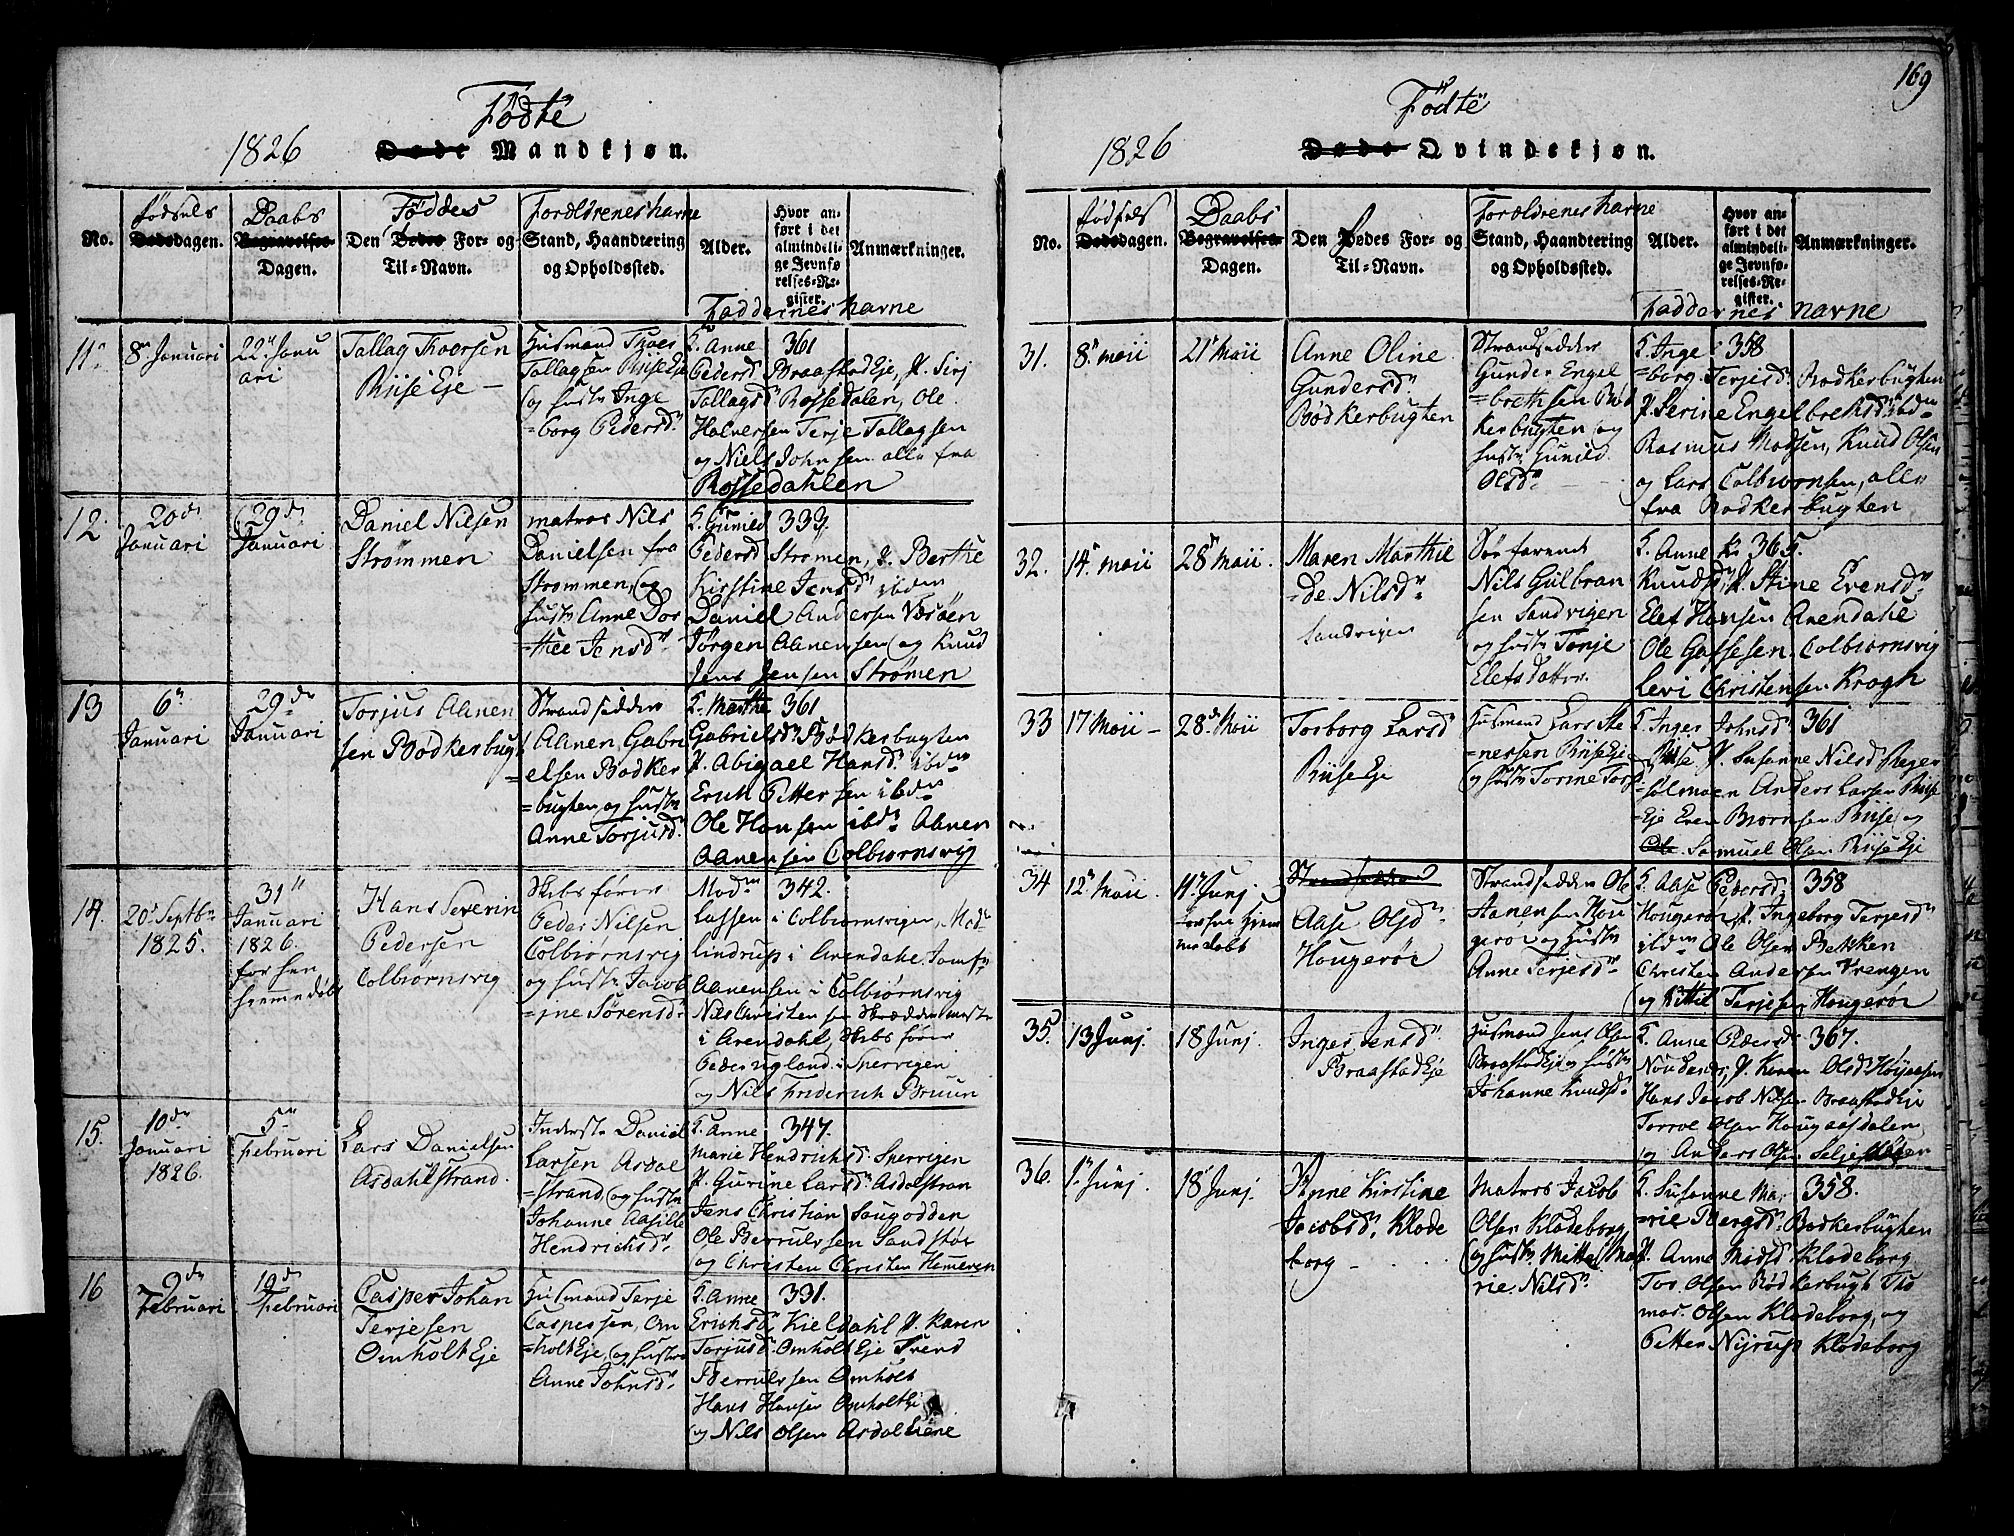 169
Födte
1826 Døde Mandkjøn.
No.
födsels
Dødsdagen.
Daabs
Begravelses-
Dagen.
Föddes
Den Dødes For- og
Til-Navn.
Forældrenes havne
Stand, Haandtering
og Opholdssted.
Alder.
Hvor an-
ført i det
almindeli-
ge Jevnfø-
relses-Re-
gister.
Anmærkninger.
Faddernes navne
11
8de Januari
22de Janu
ari
Tallag Thoersen
Riise Eje
Huusmand Thoes
Tallagsen Riise Eje
og hustr Inge
=borg Pedersd
Anne 361
Pedersd Braastad Eje,
Tallagsd Rossedalen, Ole
Halversen Terje Tallagsen
og Niels Johnsen alle fra
Rossedahlen
12
20de
Januari
29de
Januari
Daniel Nilsen
Strømmen
matros Nils
Danielsen fra
Strømmen, og
hustr Anne Dor
=thee Jensd
Gunild 333
Pedersd Strømen, J. Berthe
Kirstine Jensd ibdm
Daniel Andersen Værøen
Jørgen Aanensen og Knud
Jens Jensen Strømen
13
6te
Januari
29de
Januari
Torjus Aanen
sen Bodkerbugt
Strandsidder
Aanen Gabri
elsen Bodker
=bugten og hustr
Anne Torjusd
Marthe 361
Gabrielsd Bödkerbugten
J. Abigael Hansd ibdm
Erich Pittersen ibdm
Ole Hansen ibd Aanen
Aanensen Colbiornsvig
14.
20de Septbr
1825.
31te
Januari
1826.
for hen
hjemmedöbt
Hans Severin
Pedersen
Colbiornsvig
Skibsfører
Peder Nilsen
Colbiørnsvig
og hustr Jacob
=ine Sørensd
Madm 342.
Lassen i Colbiornsvigen, Mad
Lindrup i Arendahl, Jomfr
Aanensen i Colbiørnsvig
Nils Christensen Skræddermester
i Arendahl, Skibsfører
Peder Ugland i Sperrigen
og Nils Friderich Bruun
15.
10de
Januari
1826.
5te
Februari
Lars Danielsen
Asdahlstrand.
Inderst Daniel
Larsen Asdal
=strand, og hustr
Johanne Aasille
Hendrichsd
Anne 347.
Marie Hendrichsd Sperrigen
J. Gurine Larsd Asdalstran
Jens Christian Saugodden
Ole Berrulvsen Sandstø
og Christen Christen Hemeren
16
9de
Februari
19de
Februari
Casper Johan
Terjesen
Omholt Eje
Huusmand Terje
Caspersen, Om
=holt Eje, og hustr
Anne Johnsd
Anne 331.
Erichsd Kieldahl J. Karen
Torjusd Omholt Eje Trend
Berrulvsen Omholt
Hans Hansen Omholt
og Nils Olsen Asdal Eiene
Födte
1826 Døde Qvindekjøn.
No.
födsels
Dødsdagen.
Daabs
Begravelses-
Dagen.
Den Dødes For- og
Til-Navn.
Forældrenes havne
Stand, Haandtering
og Opholdssted.
Alder.
Hvor an-
ført i det
almindeli-
ge Jevnfø-
relses-Re-
gister.
Anmærkninger.
Faddernes navne
31.
8de maii
21de Maii
Anne Oline
Gundersd
Bödkerbugten
Strandsidder
Gunder Engel
=brethsen Böd
kerbugten og
hustr Gunild
Olsd
Inge 358
=borg Terjesd Bodkerbugten
J. Serine Engelbrethsd ibdm
Rasmus Madsen, Knud Olsen
og Lars Colbiornsen, alle
fra Bodkerbugten
32.
14de maii
28de Maii.
Maren Marthil
=de Nilsd
Sandvigen
Söefarende
Nils Gulbran
sen Sandvigen
og hustr Tonje
Elefsdatter.
Anne Kr 365.
Knudsd, J. Stine Evensd
Elef Hansen Arendahl
Ole Gassesen Colbiornsvig
Levi Christensen Krogh
33
17 Maii
28de Maii
Torborg Larsd
Riise Eje
Huusmand Lars Ste
=nersen Riise Eje
og hustr Torine Torsd
Inger Johnsd 361
Riise J. Susanne Nilsd Reger
=holmen Anders Larsen Riise
Eje Even Biornsen Riise og
Ole Samuel Olsen Riise Eje
34
12de Maii.
11te Junj
hjem
medöbt
Strandsidder
Aase Olsd
Hougerör
Strandsidder Ole
Aanensen Hou
gerör og hustr
Anne Terjesd
Aase Pedersd 358
Hougerör J. Ingeborg Terjesd
ibdm Ole Olsen Bekken
Christen Andersen Vrengen
og Kittil Terjesen Hougerör
35.
13 Junj.
18 Junj.
Inger Jensd
Braastad Eje
Huusmand Jens Olsen
Braastad Eje og hustr
Johanne Knudsd
Anne Pedersd 367.
J. Karen Olsd Höyaasen
Hans Jacob Nilsen Braastad Eje
Torroe Olsen Hougaasdalen
og Anders Olsen
36.
1te Junj.
18 Junj.
Anne Kirstine
Jacobsd Klode
borg
Matros Jacob
Olsen Klodeborg
og hustr Mette Ma
rie. Nilsd
Susanne Ma 358.
=rie Bergsd Bodkerbugten
J. Anne Madsd Klodeborg
Tor Olsen Bödkerbugt Tho
mas. Olsen Klodeborg, og
Petter Nyrup Klodeborg